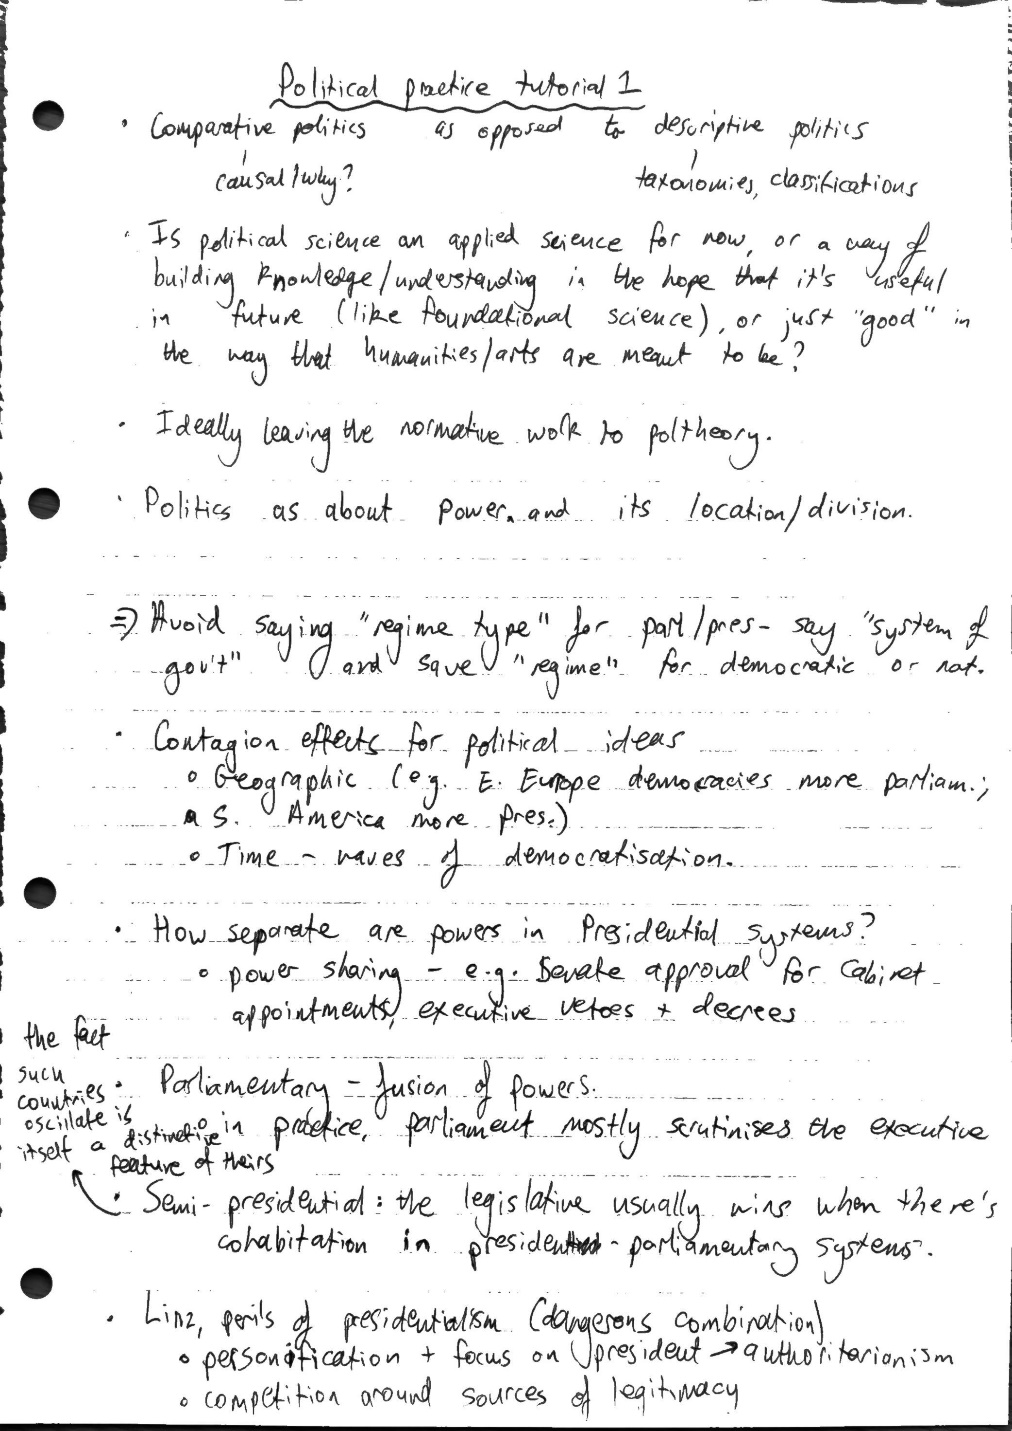 Political practice tutorial 1
· Comparative politics as opposed to descriptive politics
causal/why? taxonomies, classifications
· Is political science an applied science for now, or a way of
building knowledge/understanding in the hope that it's useful
in future (like foundational science), or just "good" in
the way that humanities/arts are meant to be?
· Ideally leaving the normative work to poltheory.
· Politics as about power, and its location/division.
⇒ Avoid saying "regime type" for parl/pres - say "system of
gov't" and save "regime" for democratic or not.
· Contagion effects for political ideas
o Geographic (e.g. E. Europe democracies more parliam.;
S. America more pres.)
o Time - waves of democratisation.
· How separate are powers in Presidential systems?
o power sharing - e.g. Senate approval for Cabinet
appointments, executive vetoes + decrees
· Parliamentary - fusion of powers.
o in practice, parliament mostly scrutinises the executive
the fact
such
countries
oscillate is
itself a distinctive
feature of theirs
· Semi-presidential: the legislative usually wins when there's
cohabitation in president-parliamentary systems.
· Linz, perils of presidentialism (dangerous combination)
o personification + focus on president → authoritarianism
o competition around sources of legitimacy